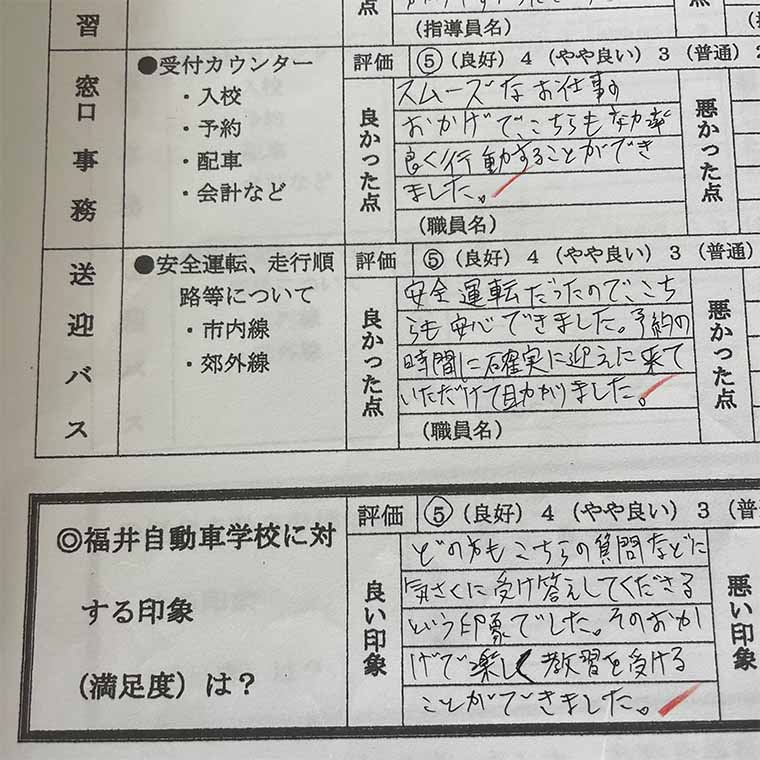 習
(指導員名)
窓口事務
●受付カウンター
・入校
・予約
・配車
・会計など
評価 ⑤(良好) 4(やや良い) 3(普通)
良かった点
スムーズなお仕事の
おかげでこちらも効率
良く行動することができ
ました。
(職員名)
悪かった点
送迎バス
●安全運転、走行順
路等について
・市内線
・郊外線
評価 ⑤(良好) 4(やや良い) 3(普通)
良かった点
安全運転だったのでこち
らも安心できました。予約の
時間に確実に迎えに来て
いただけて助かりました。
(職員名)
悪かった点
◎福井自動車学校に対
する印象
(満足度)は?
評価 ⑤(良好) 4(やや良い) 3(普
良い印象
どの方もこちらの質問などに
気さくに受け答えしてくださる
という印象でした。そのおか
げで楽しく教習を受ける
ことができました。
悪い印象